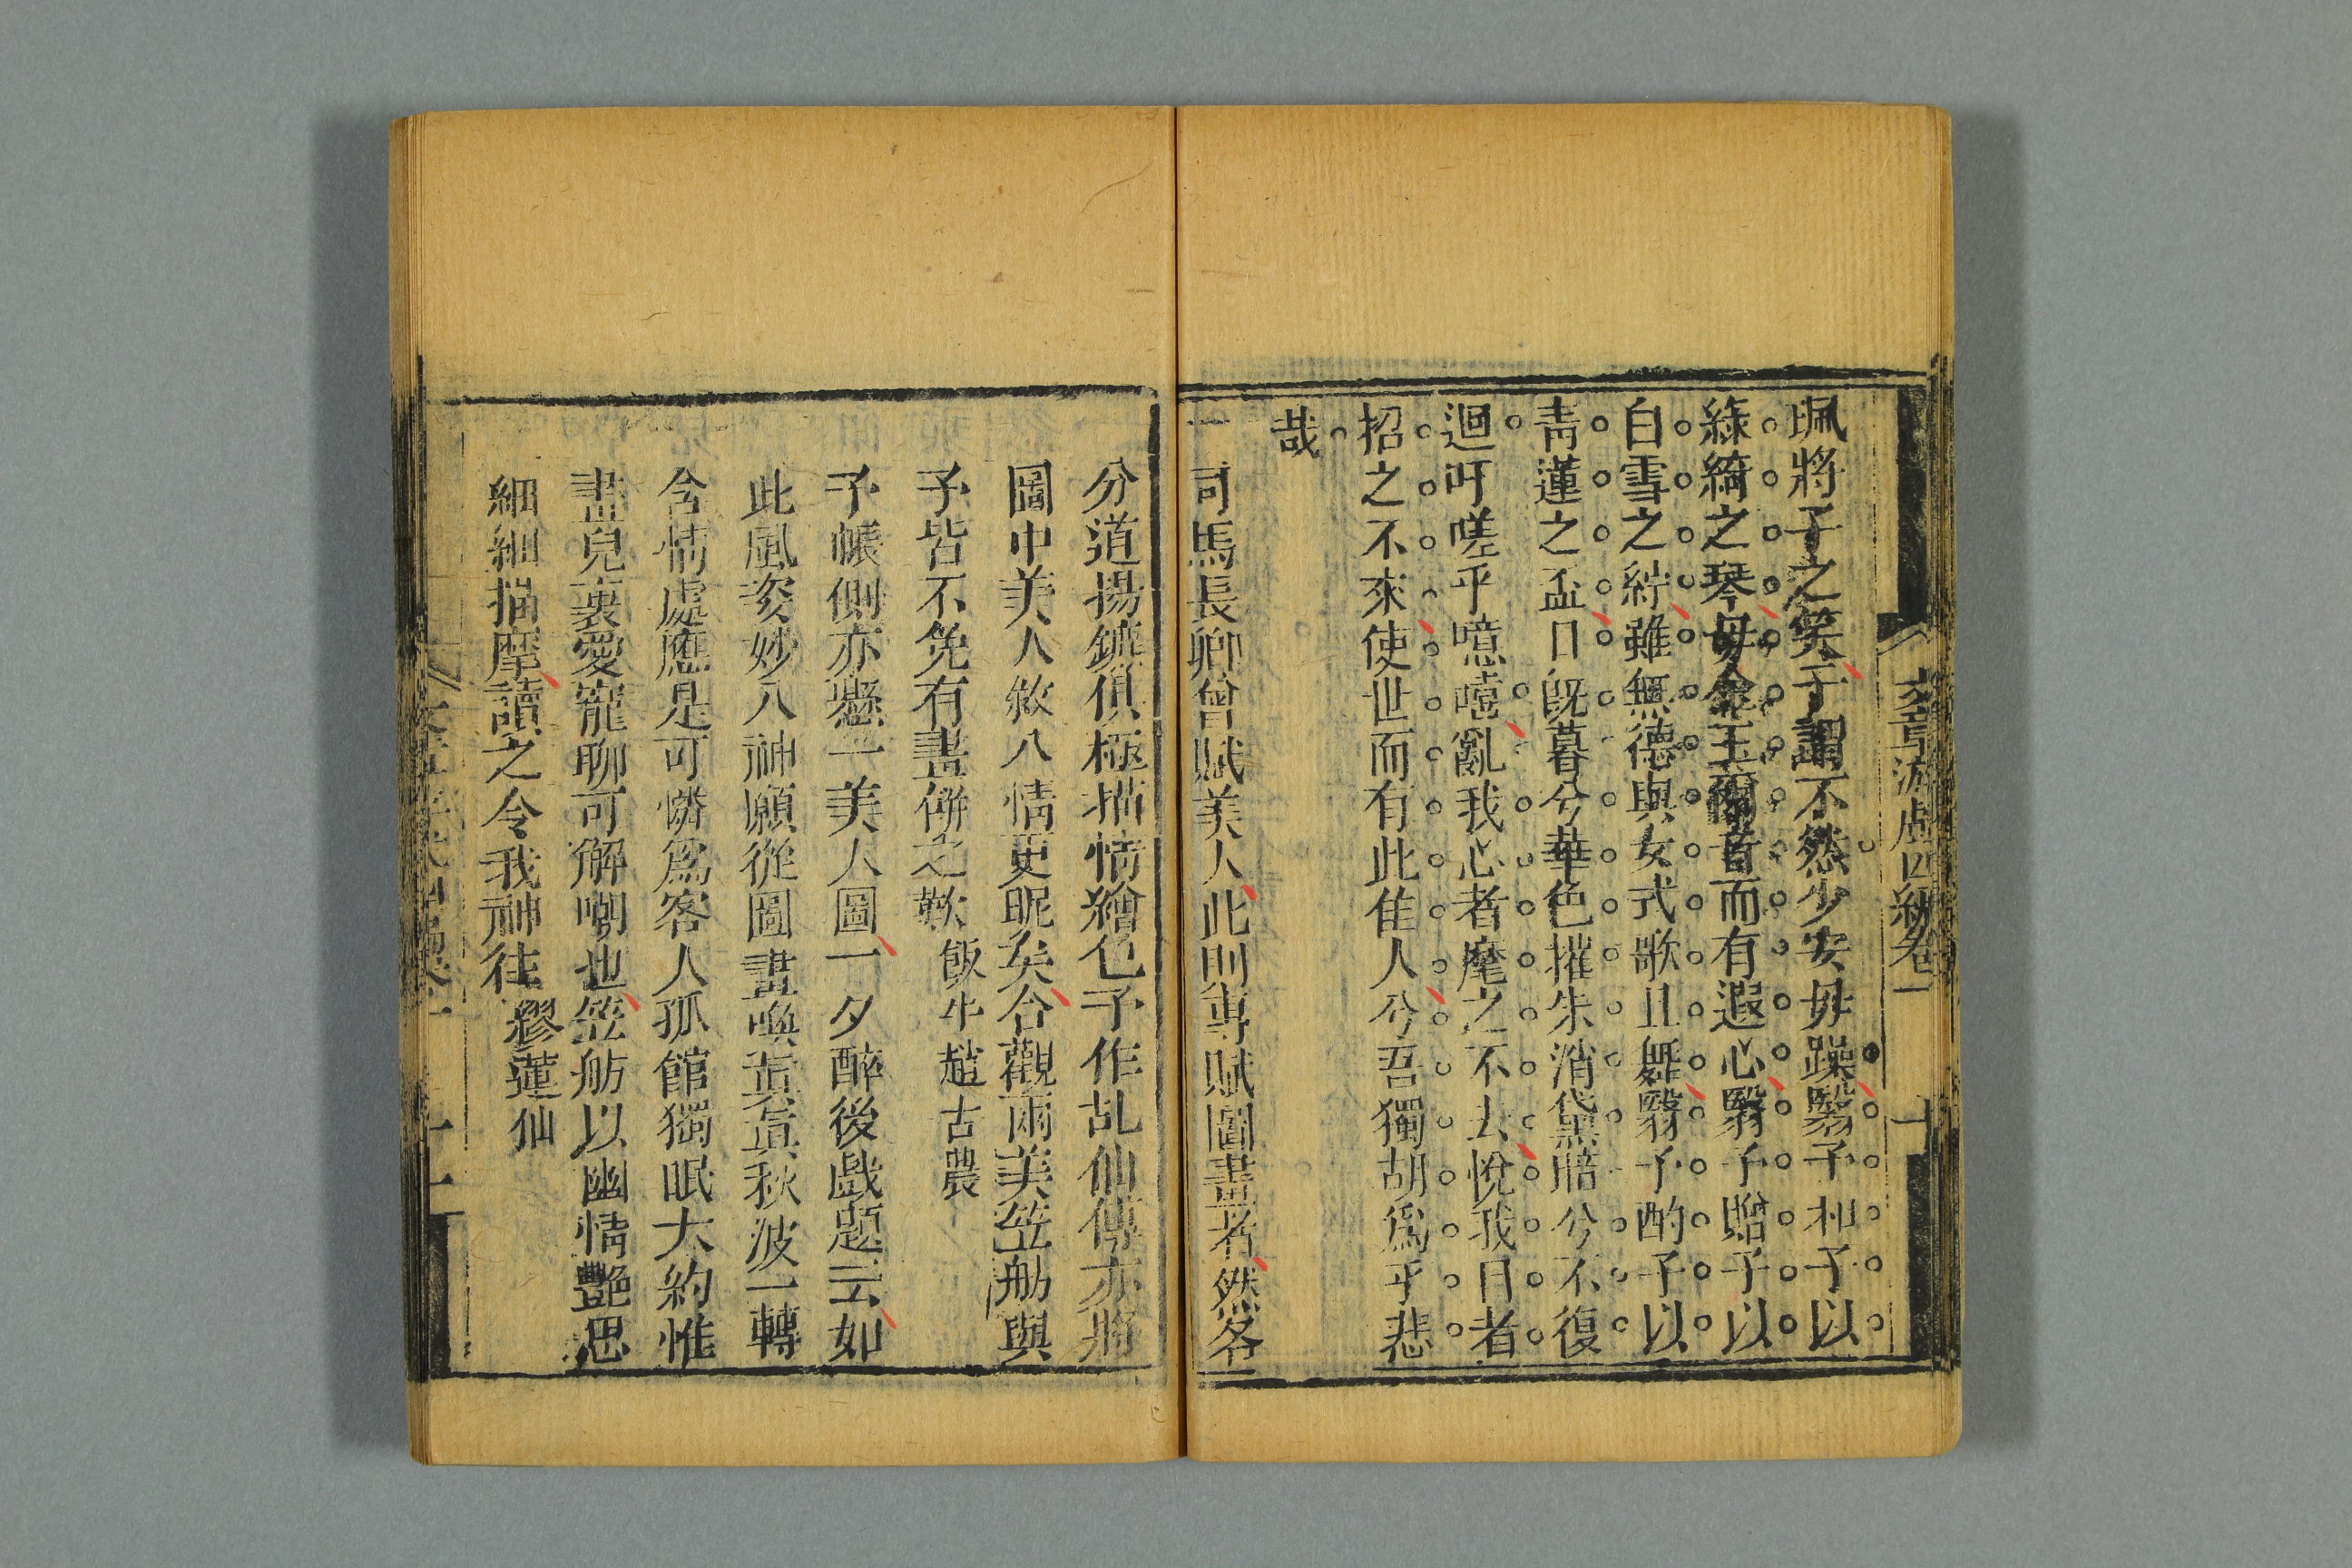 珮將子之笑予謂不然少安毋躁翳予和予以
綠綺之琴毋金玉爾音而有遐心翳予贈予以
白雪之紵雖無德與女式歌且舞翳予酌予以
青蓮之盃日旣暮兮華色摧朱消黛賠兮不復
迴吁嗟乎噫嘻亂我心者麾之不去悅我目者
招之不來使世而有此佳人兮吾獨胡爲乎悲
哉
一司馬長卿曾賦美人此則專賦圖畫者然各
文章游戲四編卷一 十
分道揚鑣俱極描情繪色予作乩仙傳亦將
圖中美人敘入情更昵矣合觀兩美笠舫與
予皆不免有畫餅之歎 飯牛趙古農
予帳側亦懸一美人圖一夕醉後戲題云如
此風姿妙入神願從圖畫喚眞眞秋波一轉
含情處應是可憐爲客人孤館獨眠大約惟
畫兒裏愛寵聊可解嘲也笠舫以幽情艷思
細細描摩讀之令我神往 繆蓮仙